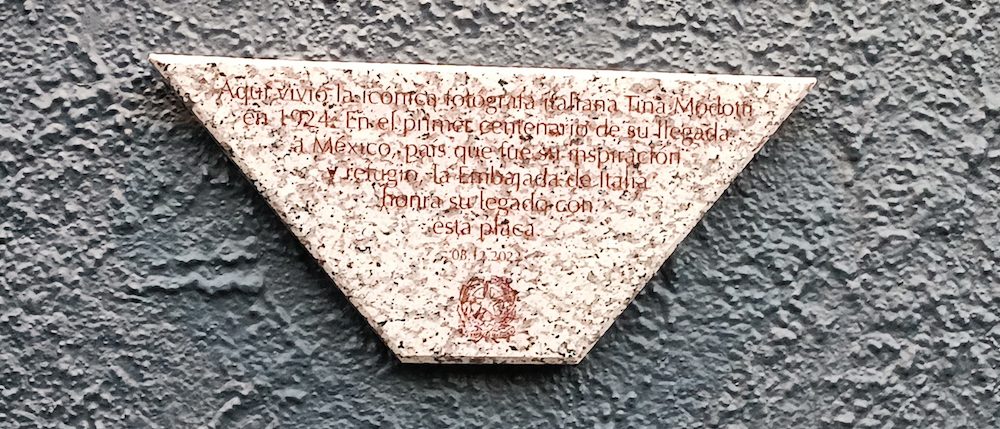 Aquí vivió la icónica fotógrafa italiana Tina Modotti
en 1924. En el primer centenario de su llegada
a México, país que fue su inspiración
y refugio, la Embajada de Italia
honra su legado con
esta placa
08.12.2022